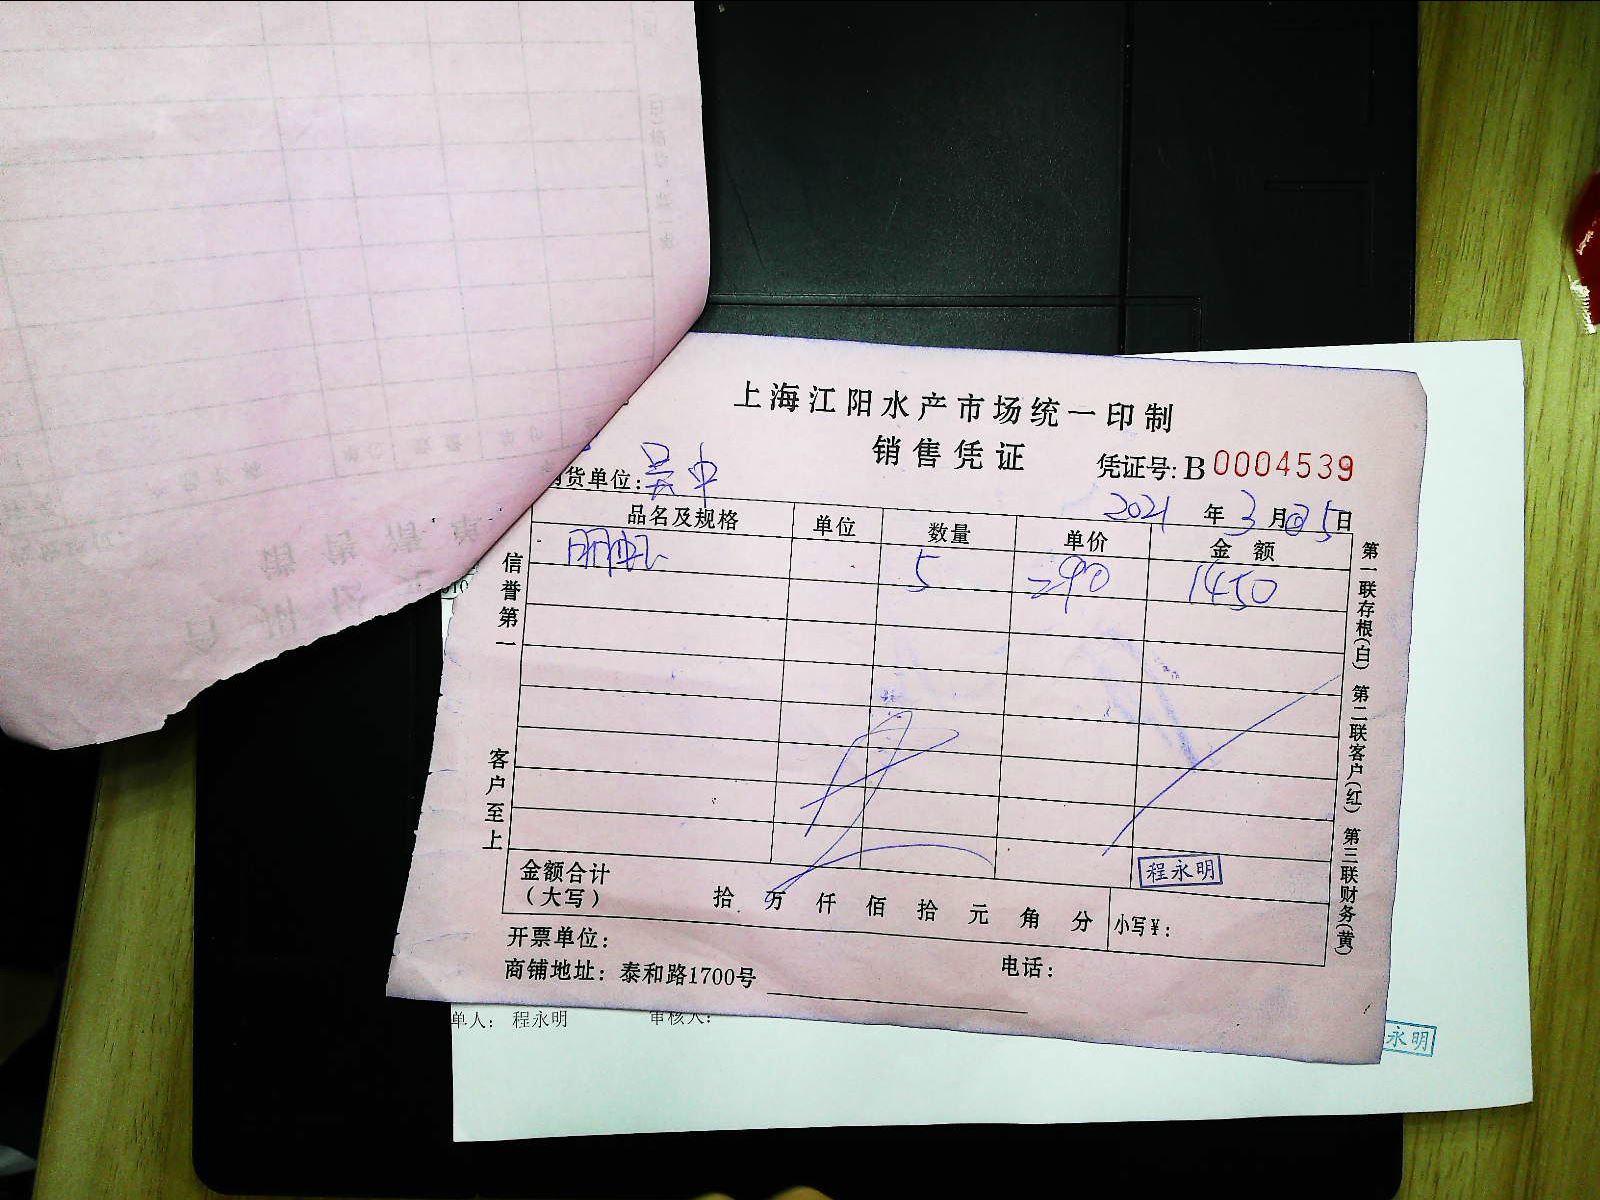 上海江阳水产市场统一印制
销售凭证
凭证号: B 0004539
货单位: 吴中
2021 年 3 月 25 日
品名及规格 单位 数量 单价 金额
5 290 1450
信誉第一
客户至上
第一联存根(白) 第二联客户(红) 第三联财务(黄)
程永明
金额合计
(大写) 拾 万 仟 佰 拾 元 角 分 小写¥:
开票单位:
商铺地址: 泰和路1700号 电话:
单人: 程永明 审核人:
永明